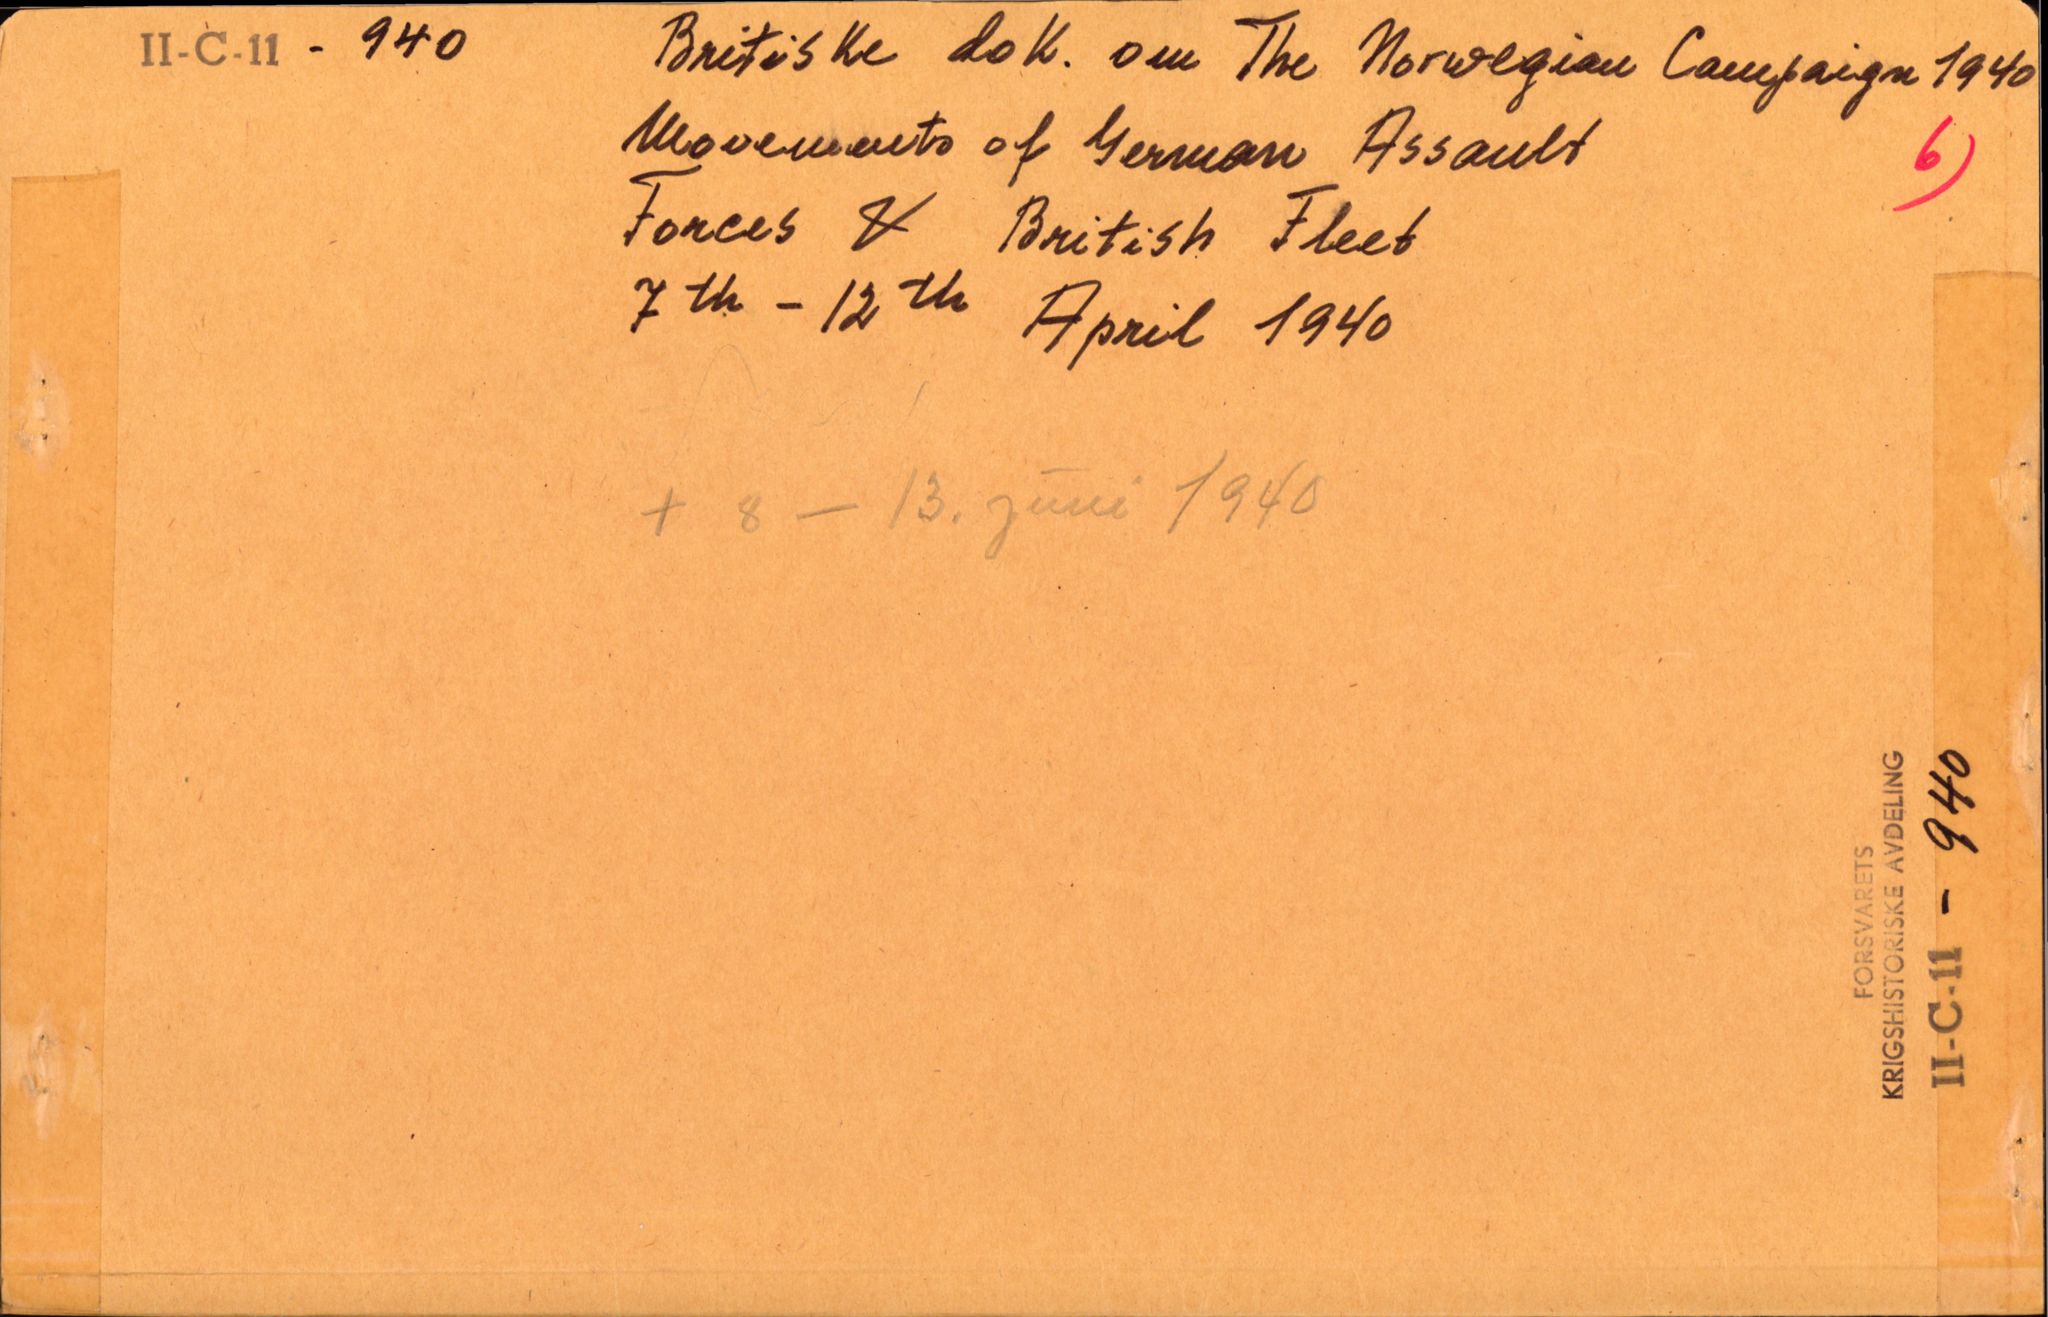 II-C-11 - 940
Britiske dok. om The Norwegian Campaign 1940
Movements of German Assault
6)
Forces & British Fleet
7th - 12th April 1940
+ 8 — 13. juni 1940
FORSVARETS
KRIGSHISTORISKE AVDELING
II-C-11 - 940